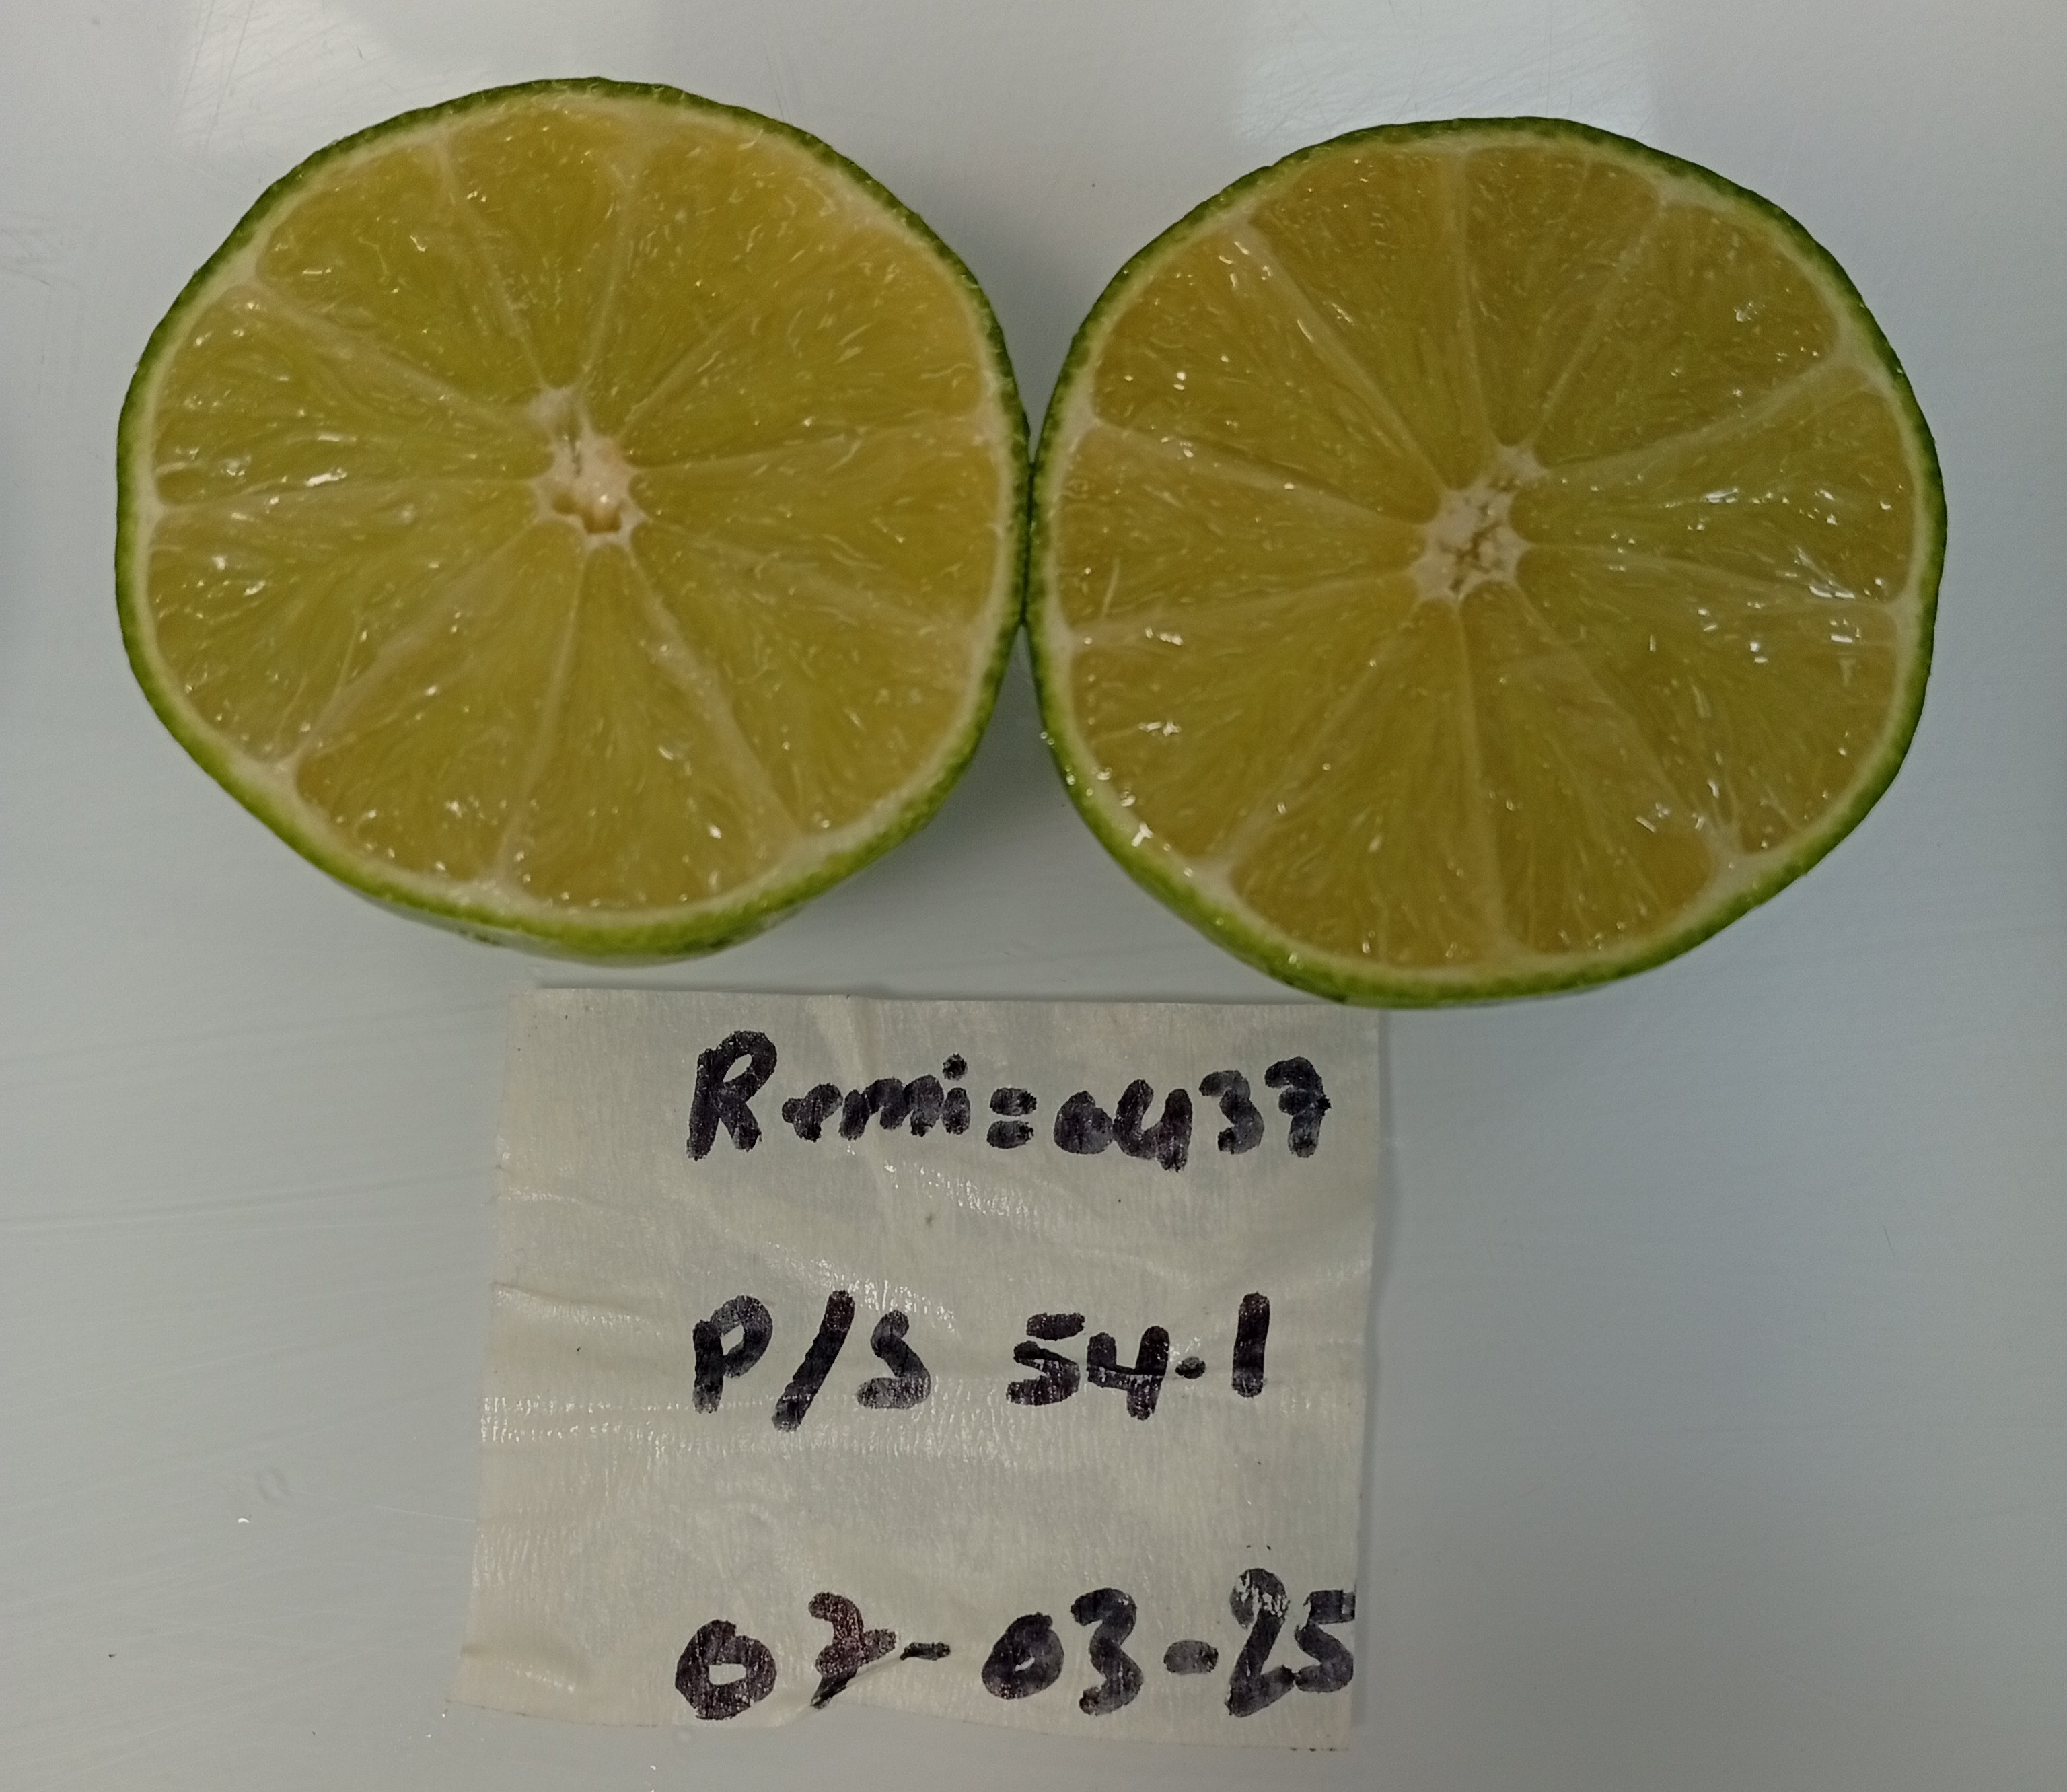 Remi=0437
P/S 54.1
07-03-25